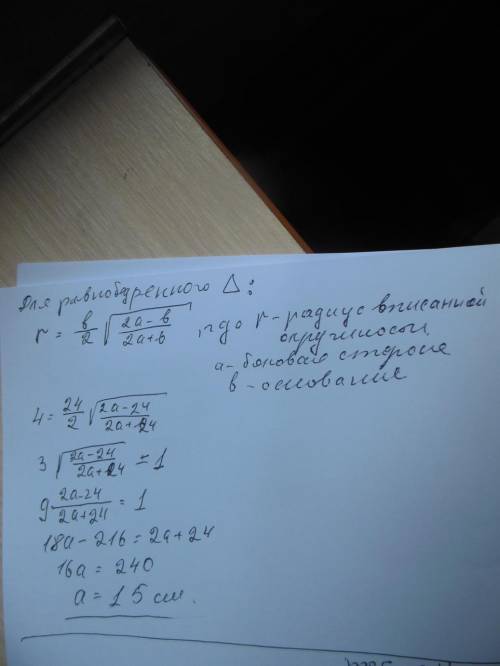 Для равнобедренного △:
r = b/2 √((2a-b)/(2a+b)), где r - радиус вписанной
окружности
a - боковая сторона
b - основание
4 = 24/2 √((2a-24)/(2a+24))
3 √((2a-24)/(2a+24)) = 1
9 (2a-24)/(2a+24) = 1
18a - 216 = 2a + 24
16a = 240
a = 15 см.